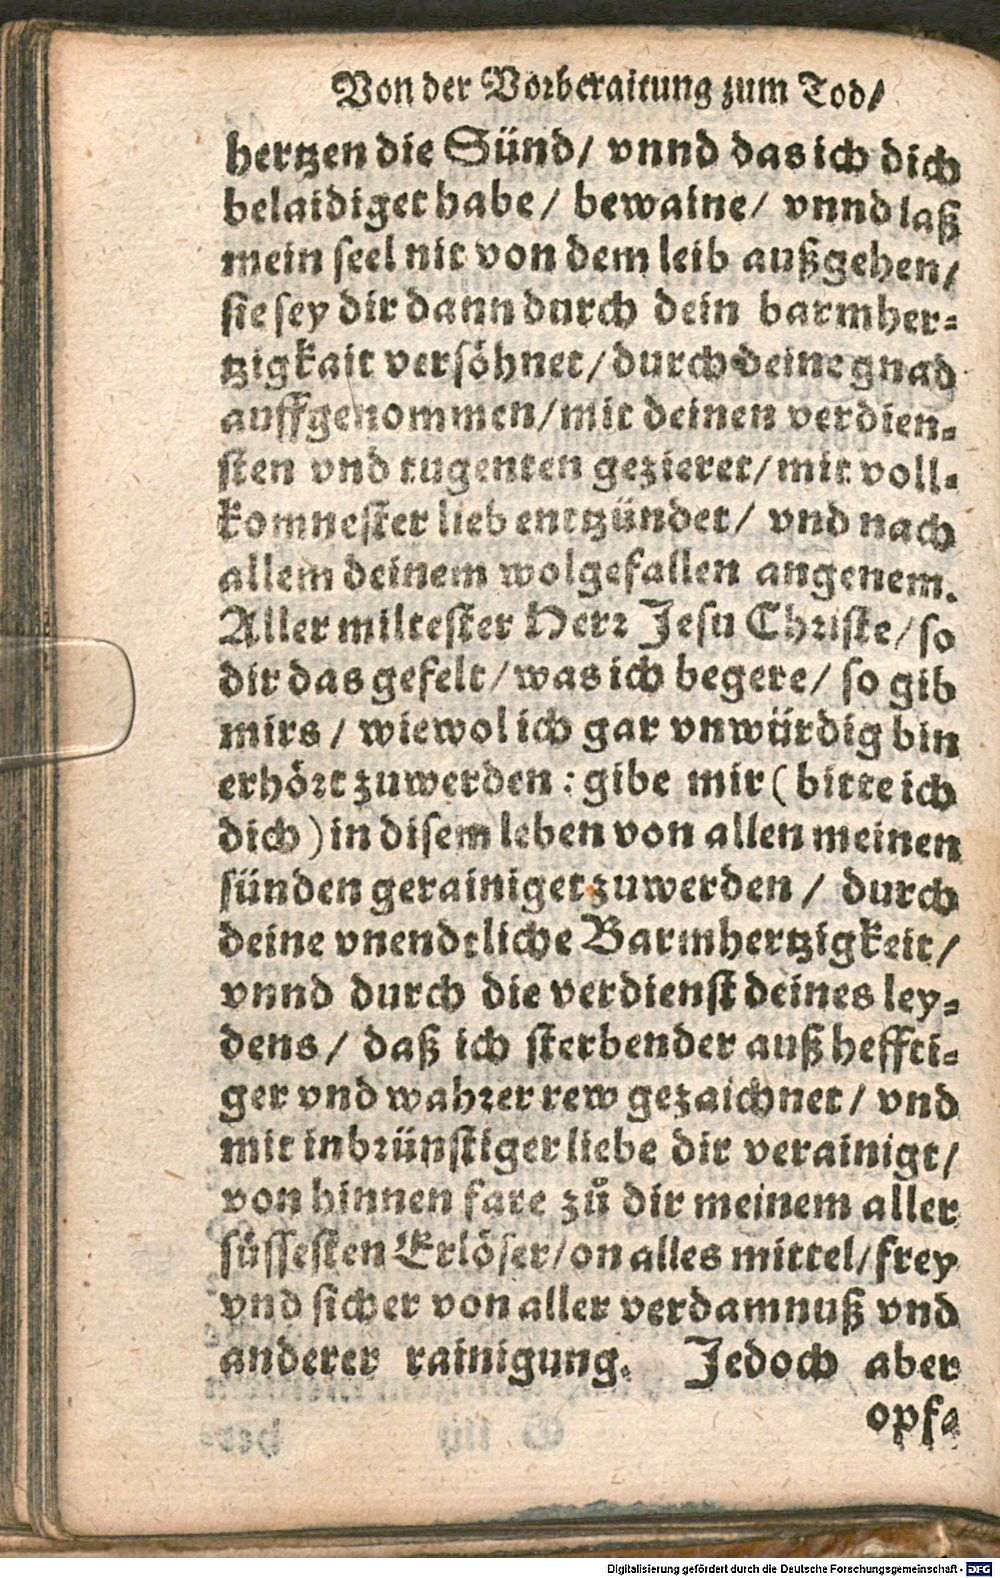 Von der Vorberaitung zum Tod/
hertzen die Sünd/ vnnd das ich dich
belaidiget habe/ bewaine/ vnnd laß
mein seel nit von dem leib außgehen/
sie sey dir dann durch dein barmher-
tzigkait versöhnet/ durch deine gnad
auffgenommen/ mit deinen verdien-
sten vnd tugenten gezieret/ mit voll-
komnester lieb entzündet/ vnd nach
allem deinem wolgefallen angenem.
Aller miltester Herr Jesu Christe/ so
dir das gefelt/ was ich begere/ so gib
mirs/ wiewol ich gar vnwürdig bin
erhört zuwerden: gibe mir (bitte ich
dich) in disem leben von allen meinen
sünden gerainiget zuwerden/ durch
deine vnendtliche Barmhertzigkeit/
vnnd durch die verdienst deines ley-
dens/ daß ich sterbender auß heffti-
ger vnd wahrer rew gezaichnet/ vnd
mit inbrünstiger liebe dir verainigt/
von hinnen fare zů dir meinem aller
süssesten Erlöser/ on alles mittel/ frey
vnd sicher von aller verdamnuß vnd
anderer rainigung. Jedoch aber
opf-
Digitalisierung gefördert durch die Deutsche Forschungsgemeinschaft - DFG